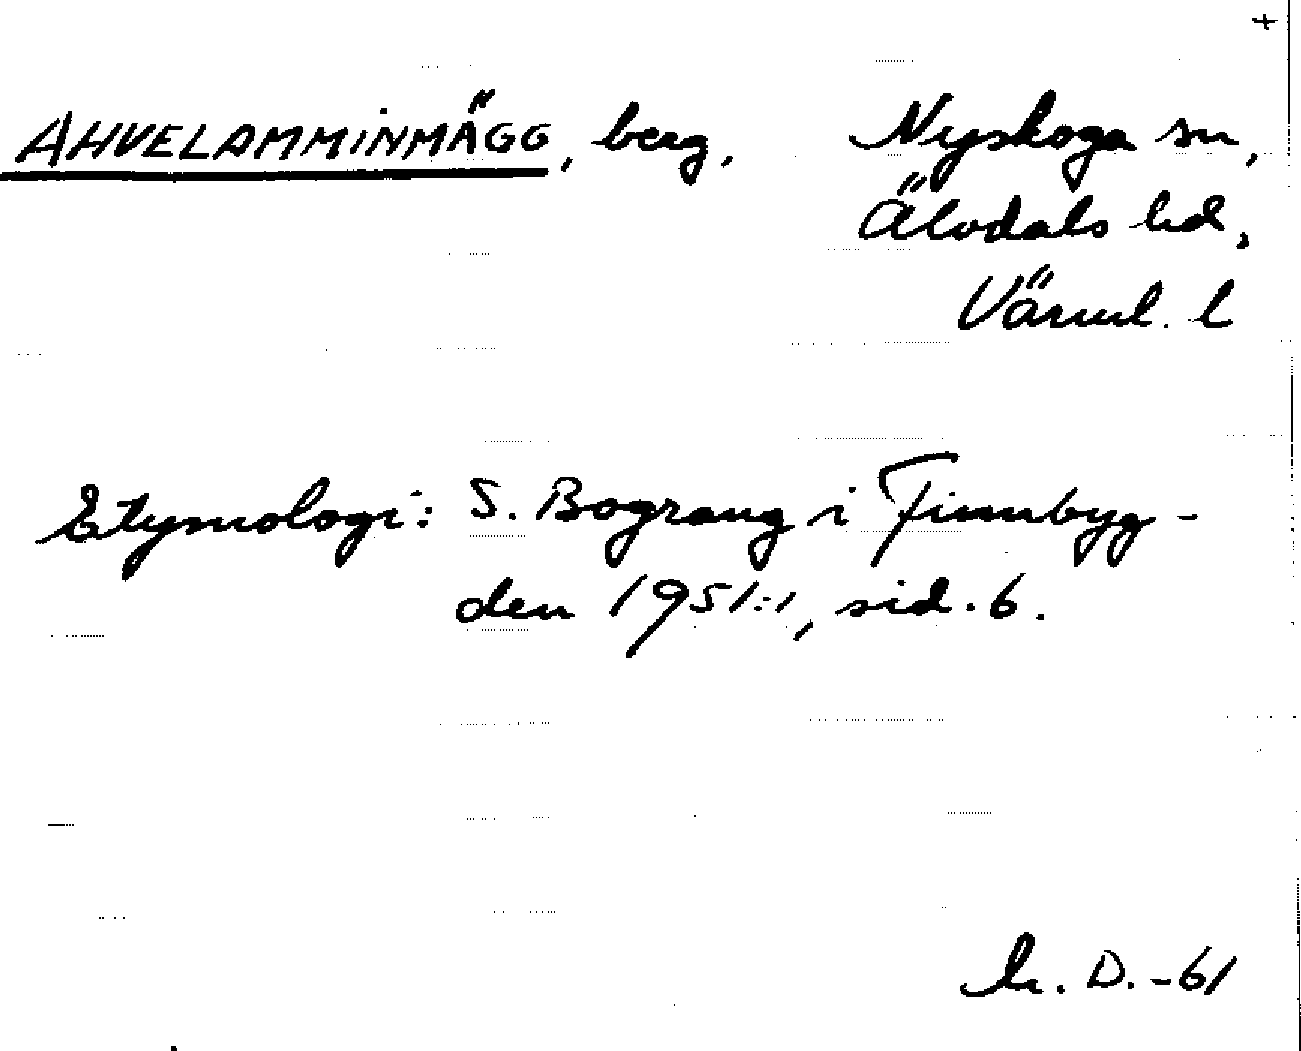 +
AHVELAMMINMÄGG, berg. Nyskoga sn,
Älvdals hd,
Värml. l
Etymologi: S. Bograng i Finnbyg-
den 1951:1, sid. 6.
D. -61